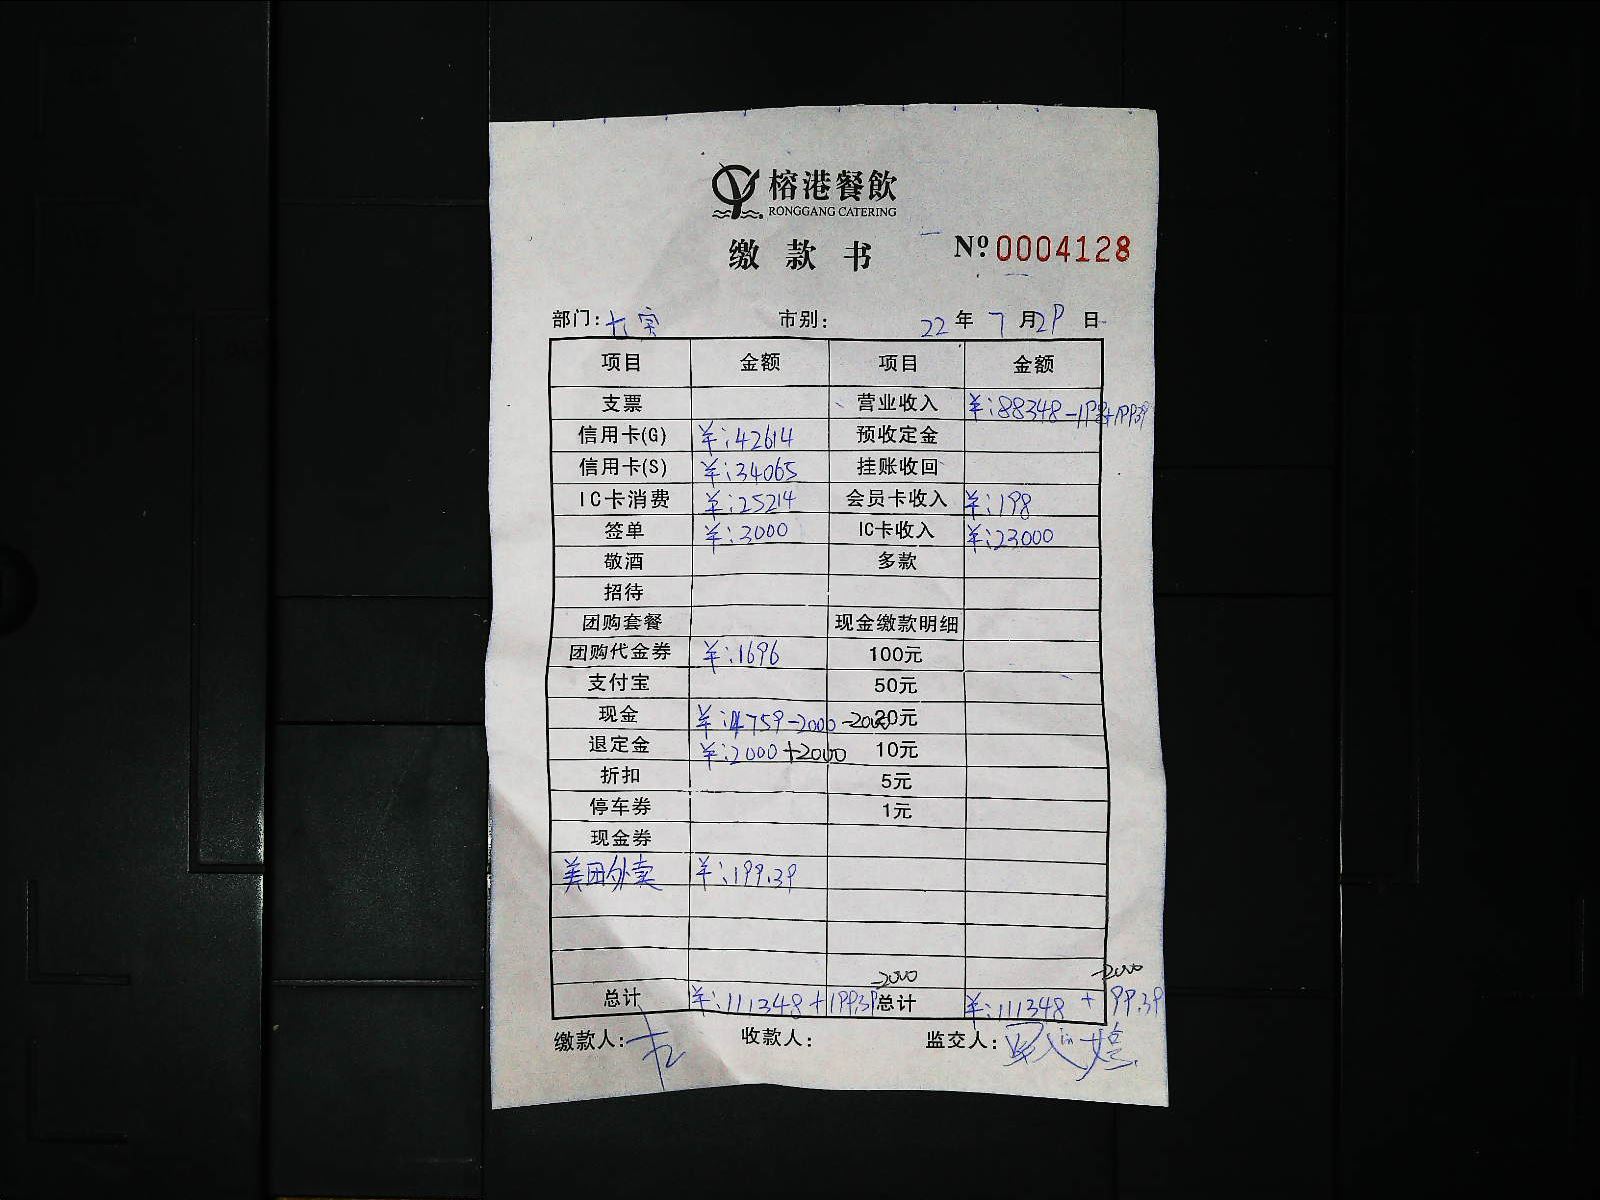 榕港餐飲
RONGGANG CATERING
缴款书 Nº 0004128
部门: 市别: 22 年 7 月 29 日
项目 金额 项目 金额
支票 营业收入 ¥:88348-198+199.39
信用卡(G) ¥:42614 预收定金
信用卡(S) ¥:34065 挂账收回
IC卡消费 ¥:25214 会员卡收入 ¥:198
签单 ¥:3000 IC卡收入 ¥:23000
敬酒 多款
招待
团购套餐 现金缴款明细
团购代金券 ¥:1696 100元
支付宝 50元
现金 ¥:4759-2000-2000 20元
退定金 ¥:2000+2000 10元
折扣 5元
停车券 1元
现金券
美团外卖 ¥:199.39
-2000 -2000
总计 ¥:111348+199.39 总计 ¥:111348+199.39
缴款人: 收款人: 监交人: